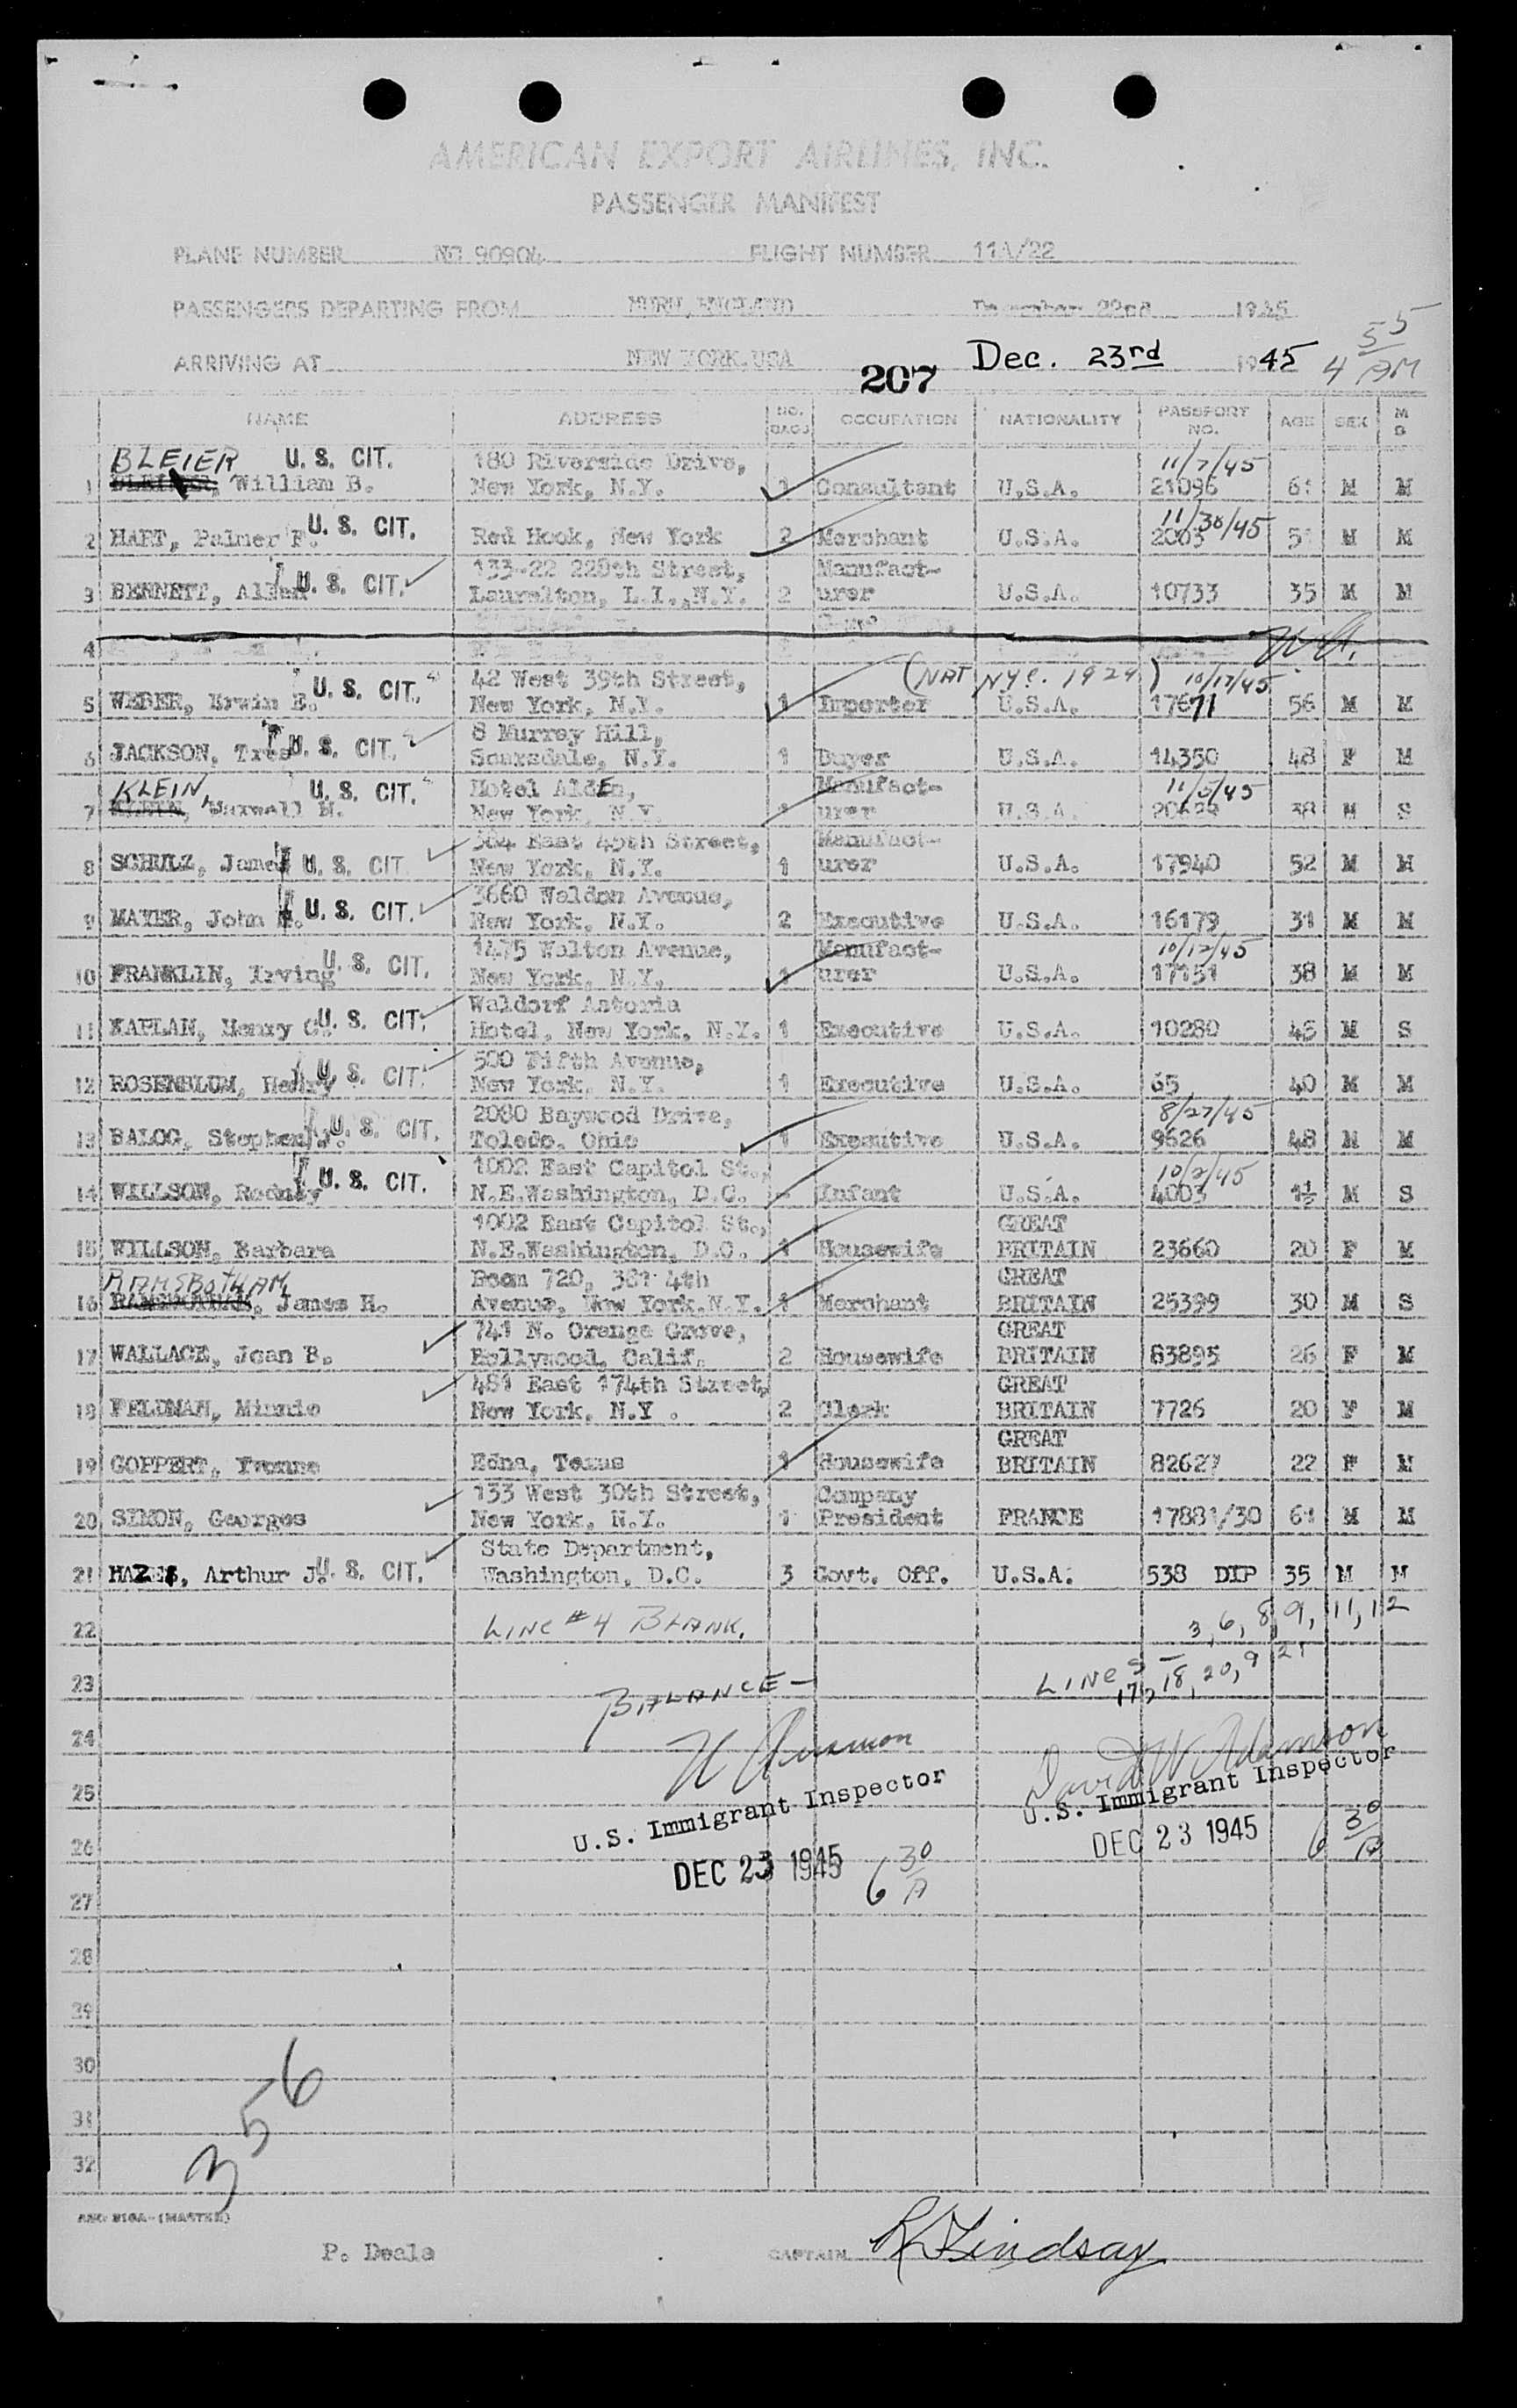 AMERICAN EXPORT AIRLINES, INC.
PASSENGER MANIFEST
PLANE NUMBER NC 90904 FLIGHT NUMBER 11A/22
PASSENGERS DEPARTING FROM HURN, ENGLAND December 22nd 1945
ARRIVING AT NEW YORK, USA Dec. 23rd 1945 4 55 AM
207
NAME ADDRESS NO. BAGS OCCUPATION NATIONALITY PASSPORT NO. AGE SEX M S
BLEIER U. S. CIT. 180 Riverside Drive, 11/7/45
1 William B. New York, N.Y. 1 Consultant U.S.A. 21096 61 M M
U. S. CIT. 11/30/45
2 HART, Palmer F. Red Hook, New York 2 Merchant U.S.A. 2003 51 M M
U. S. CIT. 133-22 228th Street, Manufact-
3 BENNETT, Allen Laurelton, L.I.,N.Y. 2 urer U.S.A. 10733 35 M M
4
U. S. CIT. 42 West 39th Street, (NAT NYC. 1924) 10/17/45
5 WEBER, Erwin E. New York, N.Y. 1 Importer U.S.A. 17671 56 M M
U. S. CIT. 8 Murray Hill,
6 JACKSON, Tres Scarsdale, N.Y. 1 Buyer U.S.A. 14350 48 F M
KLEIN, U. S. CIT. Hotel Alden, Manufact- 11/5/45
7 KLEIN, Maxwell M. New York, N.Y. 1 urer U.S.A. 38 M S
U. S. CIT 304 East 45th Street, Manufact-
8 SCHULZ, James New York, N.Y. 1 urer U.S.A. 17940 52 M M
U. S. CIT. 3660 Waldon Avenue,
9 MAYER, John New York, N.Y. 2 Executive U.S.A. 16179 31 M M
U. S. CIT. 1475 Walton Avenue, Manufact- 10/12/45
10 FRANKLIN, Irving New York, N.Y. 1 urer U.S.A. 17151 38 M M
U. S. CIT. Waldorf Astoria
11 KAPLAN, Henry C. Hotel, New York, N.Y. 1 Executive U.S.A. 10280 45 M S
U. S. CIT. 500 Fifth Avenue,
12 ROSENBLUM, Henry New York, N.Y. 1 Executive U.S.A. 65 40 M M
U. S. CIT. 2080 Baywood Drive, 8/27/45
13 BALOG, Stephen J. Toledo, Ohio 1 Executive U.S.A. 9626 48 M M
U. S. CIT. 1002 East Capitol St., 10/2/45
14 WILLSON, Rodney N.E.Washington, D.C. - Infant U.S.A. 4003 1½ M S
1002 East Capitol St., GREAT
15 WILLSON, Barbara N.E.Washington, D.C. 1 Housewife BRITAIN 23660 20 F M
RAMSBOTHAM Room 720, 381 4th GREAT
16 James H. Avenue, New York,N.Y. 1 Merchant BRITAIN 25399 30 M S
741 N. Orange Grove, GREAT
17 WALLACE, Joan B. Hollywood, Calif. 2 Housewife BRITAIN 83895 26 F M
481 East 174th Street, GREAT
18 FELDMAN, Minnie New York, N.Y . 2 Clerk BRITAIN 7726 20 F M
GREAT
19 GOPPERT, Yvonne Edna, Texas 1 Housewife BRITAIN 82627 22 F M
133 West 30th Street, Company
20 SIMON, Georges New York, N.Y. 1 President FRANCE 17881/30 61 M M
U. S. CIT. State Department,
21 Arthur J. Washington, D.C. 3 Govt. Off. U.S.A. 538 DIP 35 M M
22 LINE #4 BLANK. 3, 6, 8, 9, 11, 12
23 BALANCE - LINES - 17, 18, 20, 21
24
David W Adamson
25 U.S. Immigrant Inspector U.S. Immigrant Inspector
26 DEC 23 1945 6 30 A DEC 23 1945 6 30 A
27
28
29
30
31
32
356
P. Deale CAPTAIN R Lindsay